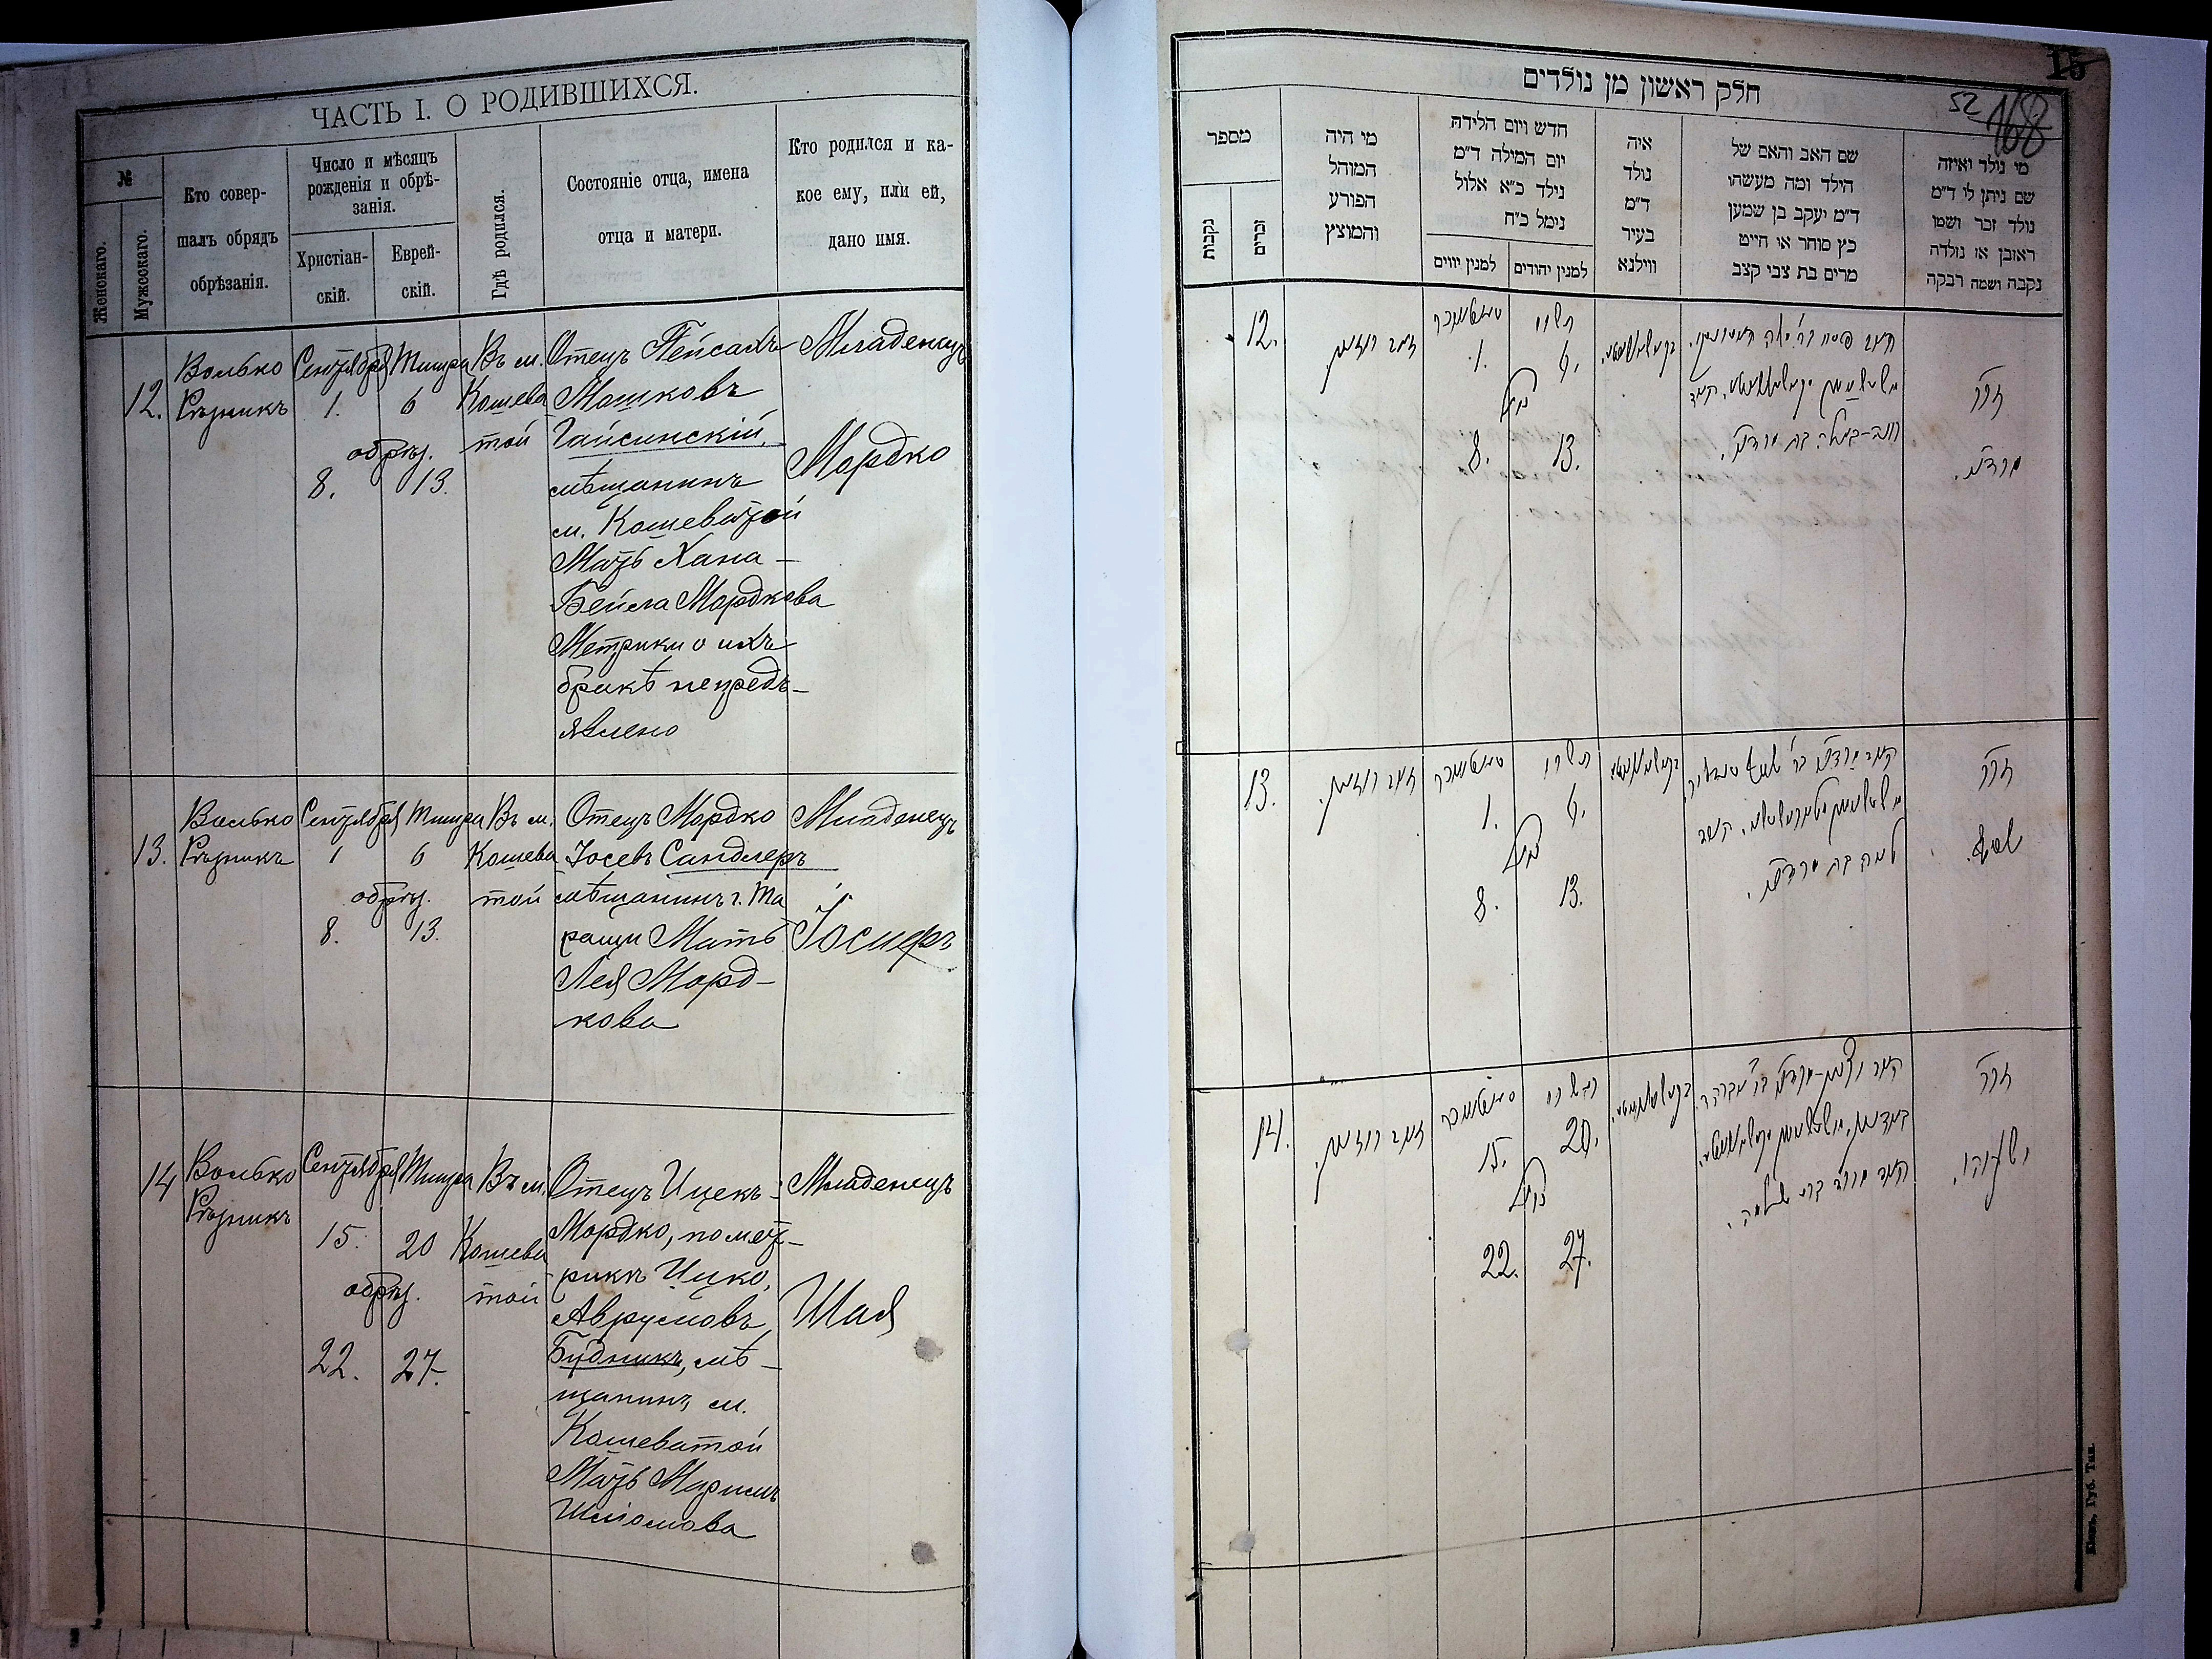 ЧАСТЬ I. О РОДИВШИХСЯ.
№
Женскаго.
Мужескаго.
Кто совер-
шалъ обрядъ
обрѣзанія.
Число и мѣсяцъ
рожденія и обрѣ-
занія.
Христіан-
скій.
Еврей-
скій.
Гдѣ родился.
Состояніе отца, имена
отца и матери.
Кто родился и ка-
кое ему, или ей,
дано имя.
12.
Волько
Рѣзникъ
Сентября
1.
Тишри
6
обрѣз.
8.
13.
Въ м.
Кошева
той
Отецъ Пейсахъ
Мошковъ
Гайсинскій,
мѣщанинъ
м. Кошеватой
Мать Хана-
Бейла Мордкова
Метрики о ихъ
бракѣ непредъ-
явлено
Младенецъ
Мордко
13.
Волько
Рѣзникъ
Сентября
1
Тишри
6
обрѣз.
8.
13.
Въ м.
Кошева
той
Отецъ Мордко
Іосевъ Сандлеръ
мѣщанинъ г. Та
ращи Мать
Лея Морд-
кова
Младенецъ
Іосифъ
14
Волько
Рѣзникъ
Сентября
15.
Тишри
20
обрѣз.
22.
27.
Въ м.
Кошева
той
Отецъ Ицекъ-
Мордко, помет-
рикѣ Ицко,
Аврумовъ
Будникъ, мѣ-
щанинъ м.
Кошеватой
Мать Маримъ
Шліомова
Младенецъ
Шая
15
52
168
חלק ראשון מן נולדים
מספר
נקבות
זכרים
מי היה
המוהל
הפורע
והמוצץ
חדש ויום הלידה
יום המילה ד"מ
נילד כ"א אלול
נימל כ"ח
למנין יווים
למנין יהודים
איה
נולד
ד"מ
בעיר
ווילנא
שם האב והאם של
הילד ומה מעשהו
ד"מ יעקב בן שמען
כץ סוחר או חייט
מרים בת צבי קצב
מי נולד ואיזה
שם ניתן לו ד"מ
נולד זכר ושמו
ראובן או נולדה
נקבה ושמה רבקה
12.
1.
תשרי
6.
8.
13.
זכר
מרדכי.
13.
1.
תשרי
6.
8.
13.
לאה בת מרדכי.
זכר
יוסף.
14.
15.
תשרי
20.
22.
27.
זכר
ישעיהו.
Кіевъ, Губ. Тип.